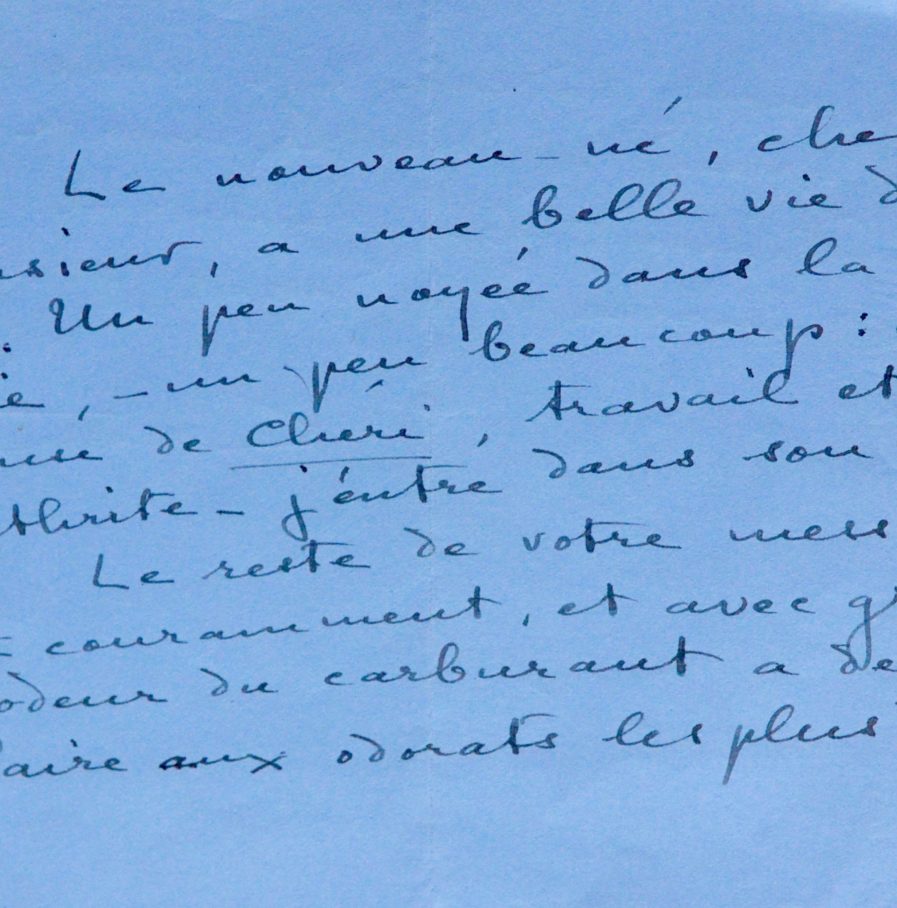 Le nouveau-né, che
sieur, a une belle vie d
. Un peu noyée dans la
ie, – un peu beaucoup :
de Chéri, travail et
thrite – j'entre dans son
Le reste de votre mess
couramment, et avec gr
odeur du carburant a de
aire aux odorats les plus